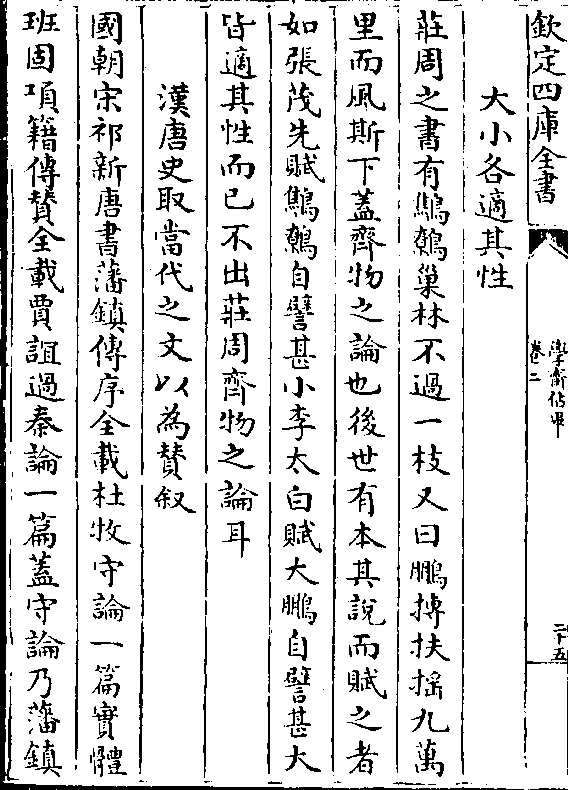 欽定四庫全書
學齋佔畢
卷二
二十五
大小各適其性
莊周之書有鷦鷯巢林不過一枝又曰鵬摶扶摇九萬
里而風斯下蓋齊物之論也後世有本其說而賦之者
如張茂先賦鷦鷯自譬甚小李太白賦大鵬自譬甚大
皆適其性而已不出莊周齊物之論耳
漢唐史取當代之文以為賛叙
國朝宋祁新唐書藩鎮傳序全載杜牧守論一篇實體
班固項籍傳賛全載賈誼過秦論一篇蓋守論乃藩鎮